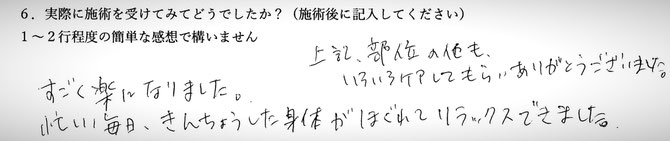 6．実際に施術を受けてみてどうでしたか？（施術後に記入してください）
1～2行程度の簡単な感想で構いません
上記、部位の他も、
いろいろケアしてもらいありがとうございました。
すごく楽になりました。
忙しい毎日、きんちょうした身体がほぐれてリラックスできました。